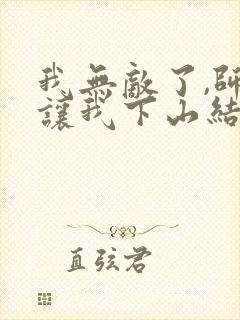 我無敵了,師
讓我下山結
直弦君